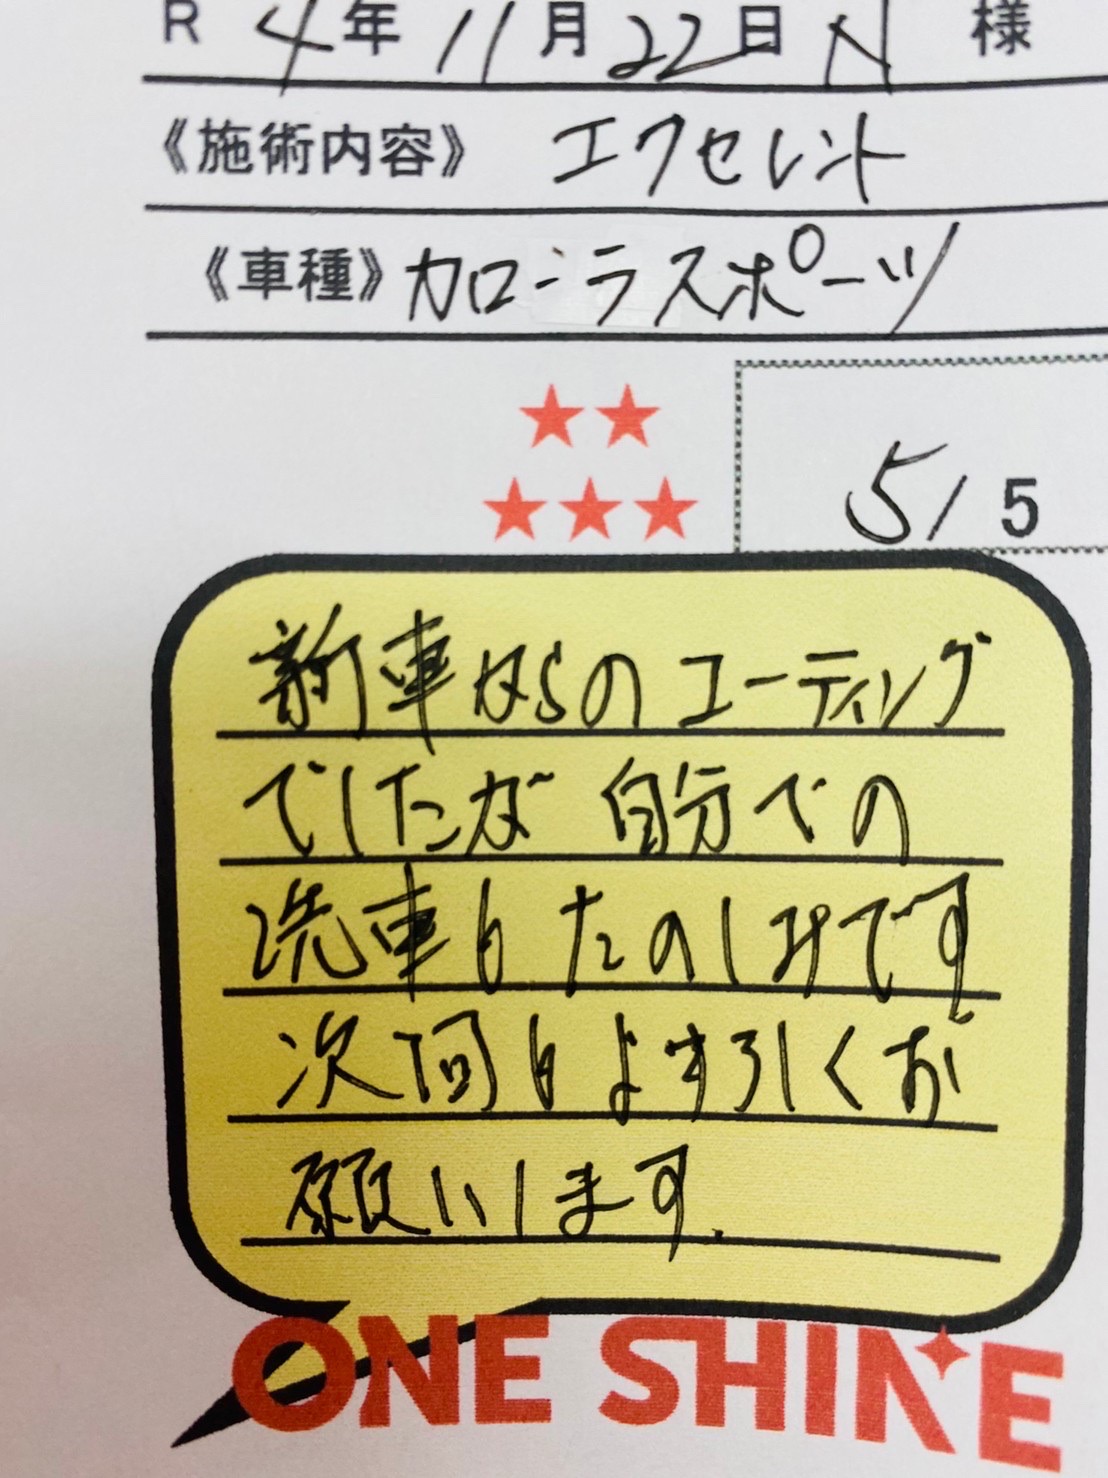 R 4年 11月 22日 N 様
《施術内容》 エクセレント
《車種》 カローラスポーツ
5/5
新車ならのコーティング
でしたが 自分での
洗車も たのしみです
次回もよろしくお
願いします.
ONE SHINE